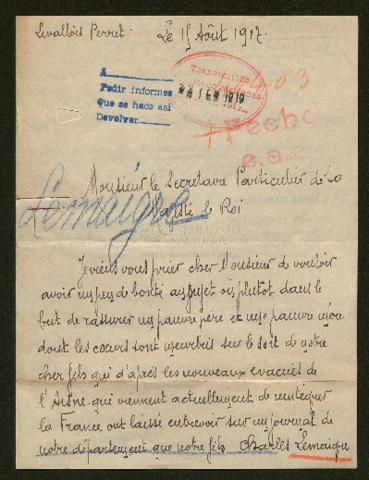 Levallois Perret. Le 15 Août 1917.
A
Pedir informes
Que se hace asi
Devolver
22 FEB 1919
403
Fecho
Monsieur le Secretaire Particulier de La
Majesté le Roi
Lemaigre
Je viens vous prier cher Monsieur de vouloir
avoir un peu de bonté au sujet ou plutot dans le
but de rassurer un pauvre père et une pauvre mère
dont les cœurs sont meurtris sur le sort de notre
cher fils qui d'après les nouveaux evacués de
l'Aisne qui viennent actuellement de reintégrer
la France ont laissé entrevoir sur un journal de
notre département que notre fils Charles Lemaigre